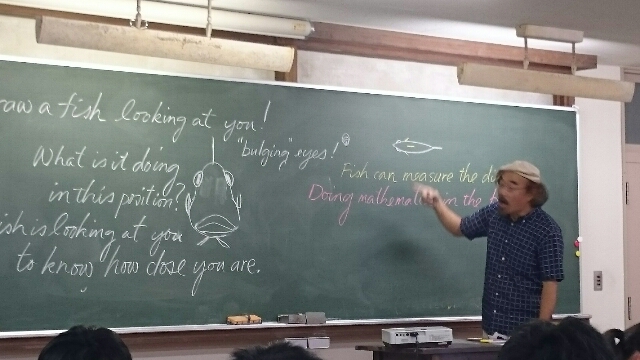 raw a fish looking at you!
"bulging" eyes!
What is it doing
in this position?
ish is looking at you
to know how close you are.
Fish can measure the d
Doing mathemati in the